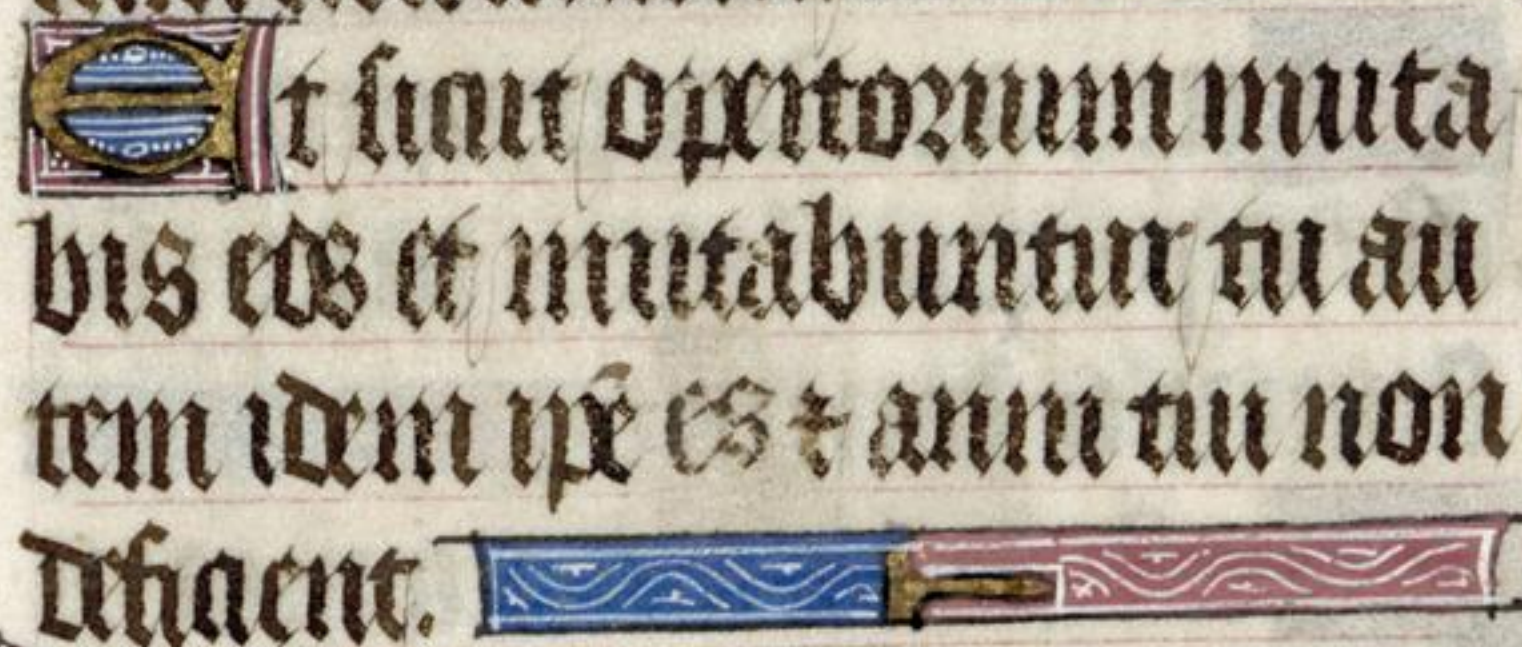 Et sicut opertorium muta
bis eos et mutabuntur tu au
tem idem ip̃e es ⁊ anni tui non
deficient.